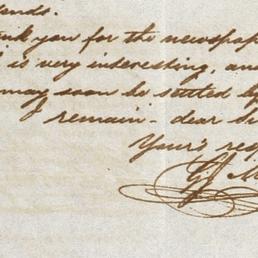 ends.
nk you for the newspap
is very interesting, an
may soon be settled by
I remain - dear Si
Your's resp